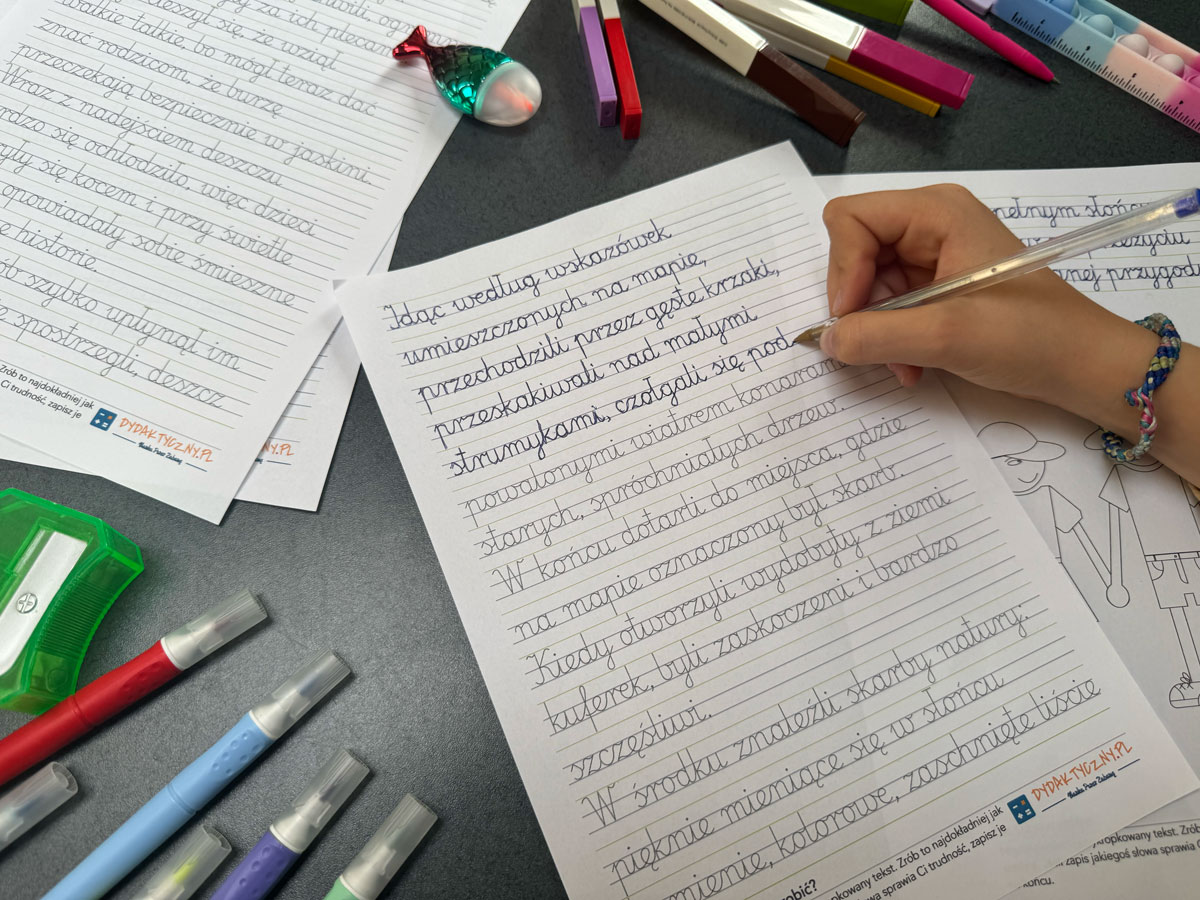 za ich plecami
cieszył się, że wziął
walkie talkie, bo mógł teraz dać
znać rodzicom, że burzę
przeczekają bezpiecznie w jaskini.
Wraz z nadejściem deszczu
się ochłodziło, więc dzieci
się kocem i przy świetle
opowiadały sobie śmieszne
historie.
szybko upłynął im
spostrzegli, deszcz
Zrób to najdokładniej jak
Ci trudność, zapisz je
DYDAKTYCZNY.PL
Nauka Przez Zabawę
NY.PL
Idąc według wskazówek
umieszczonych na mapie,
przechodzili przez gęste krzaki,
przeskakiwali nad małymi
strumykami, czołgali się pod
powalonymi wiatrem konarami
starych, spróchniałych drzew.
W końcu dotarli do miejsca, gdzie
na mapie oznaczony był skarb.
Kiedy otworzyli wydobyty z ziemi
kuferek, byli zaskoczeni i bardzo
szczęśliwi.
W środku znaleźli skarby natury:
pięknie mieniące się w słońcu
kolorowe, zaschnięte liście
robić?
tekst. Zrób to najdokładniej jak
słowa sprawia Ci trudność, zapisz je
DYDAKTYCZNY.PL
Nauka Przez Zabawę
słońc
przygod
tekst. Zrób
zapis jakiegoś słowa sprawia
końcu.